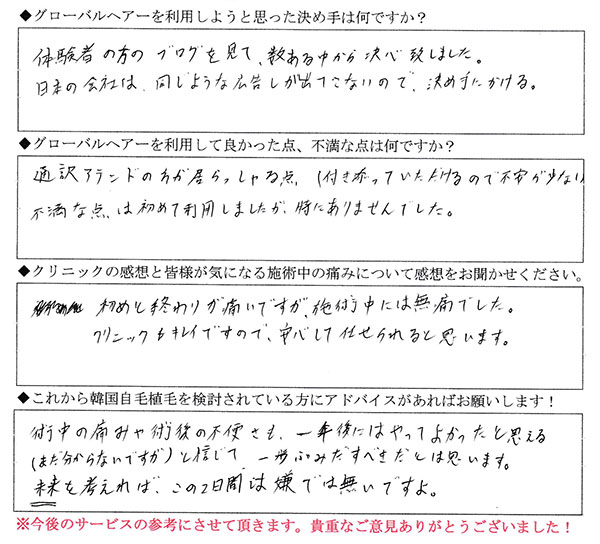 ◆グローバルヘアーを利用しようと思った決め手は何ですか？
体験者の方のブログを見て、数ある中から決め致しました。
日本の会社は、同じような広告しか出てこないので、決め手にかける。
◆グローバルヘアーを利用して良かった点、不満な点は何ですか？
通訳アテンドの方が居らっしゃる点（付き添っていただけるので不安が少ない
不満な点は初めて利用しましたが、特にありませんでした。
◆クリニックの感想と皆様が気になる施術中の痛みについて感想をお聞かせください。
初めと終わりが痛いですが、施術中には無痛でした。
クリニックもキレイですので、安心して任せられると思います。
◆これから韓国自毛植毛を検討されている方にアドバイスがあればお願いします！
術中の痛みや術後の不便さも、一年後にはやってよかったと思える
（まだ分からないですが）と信じて 一歩ふみだすべきだとは思います。
未来を考えれば、この2日間は嫌では無いですよ。
※今後のサービスの参考にさせて頂きます。貴重なご意見ありがとうございました！